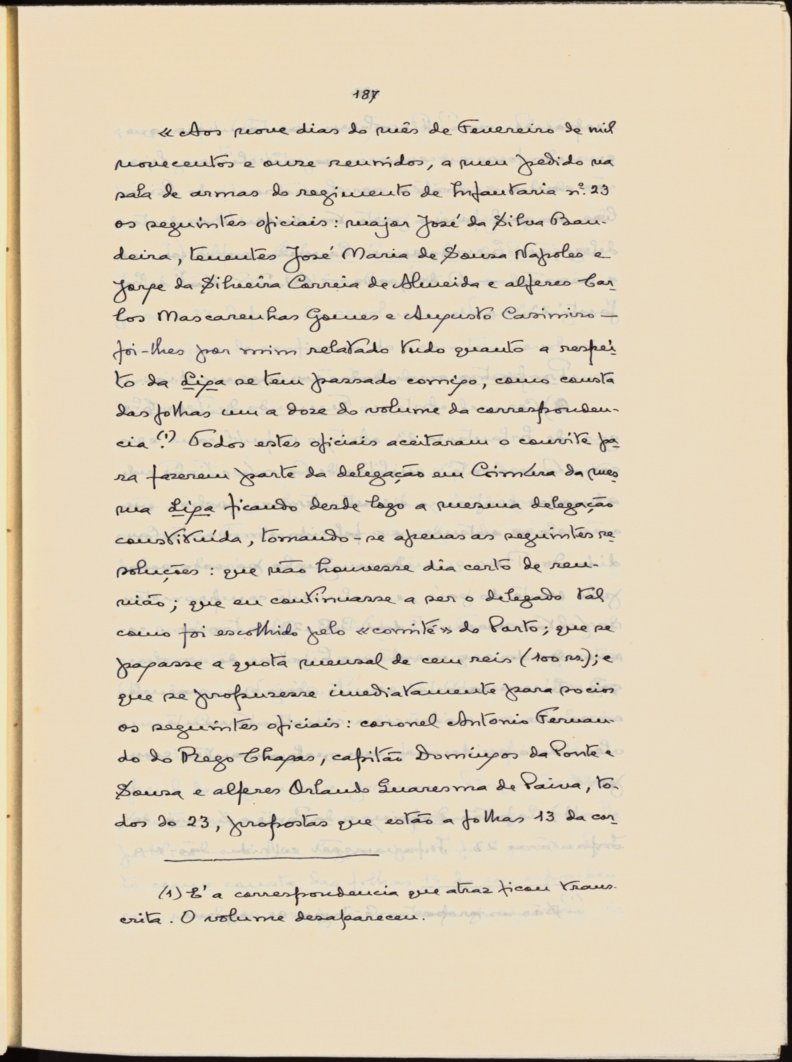 187
«Aos nove dias do mês de Fevereiro de mil
novecentos e onze reunidos, a meu pedido na
sala de armas do regimento de Infantaria nº. 23
os seguintes oficiais: major José da Silva Ban-
deira, tenentes José Maria de Sousa Napoles e
Jorge da Silveira Correia de Almeida e alferes Car-
los Mascarenhas Gomes e Augusto Casimiro —
foi-lhes por mim relatado tudo quanto a respei-
to da Liga se tem passado comigo, como consta
das folhas um a doze do volume da corresponden-
cia (1). Todos estes oficiais aceitaram o convite pa-
ra fazerem parte da delegação em Coimbra da mes-
ma Liga ficando desde logo a mesma delegação
constituída, tomando-se apenas as seguintes re-
soluções: que não houvesse dia certo de reu-
nião; que eu continuasse a ser o delegado tal
como foi escolhido pelo «comité» do Porto; que se
pagasse a quota mensal de cem reis (100 rs.); e
que se propuzesse imediatamente para socios
os seguintes oficiais: coronel Antonio Fernan-
do do Rego Chagas, capitão Domingos da Ponte e
Sousa e alferes Orlando Guaresma de Paiva, to-
dos do 23, propostas que estão a folhas 13 da cor-
(1) E' a correspondencia que atraz ficou trans-
crita. O volume desapareceu.